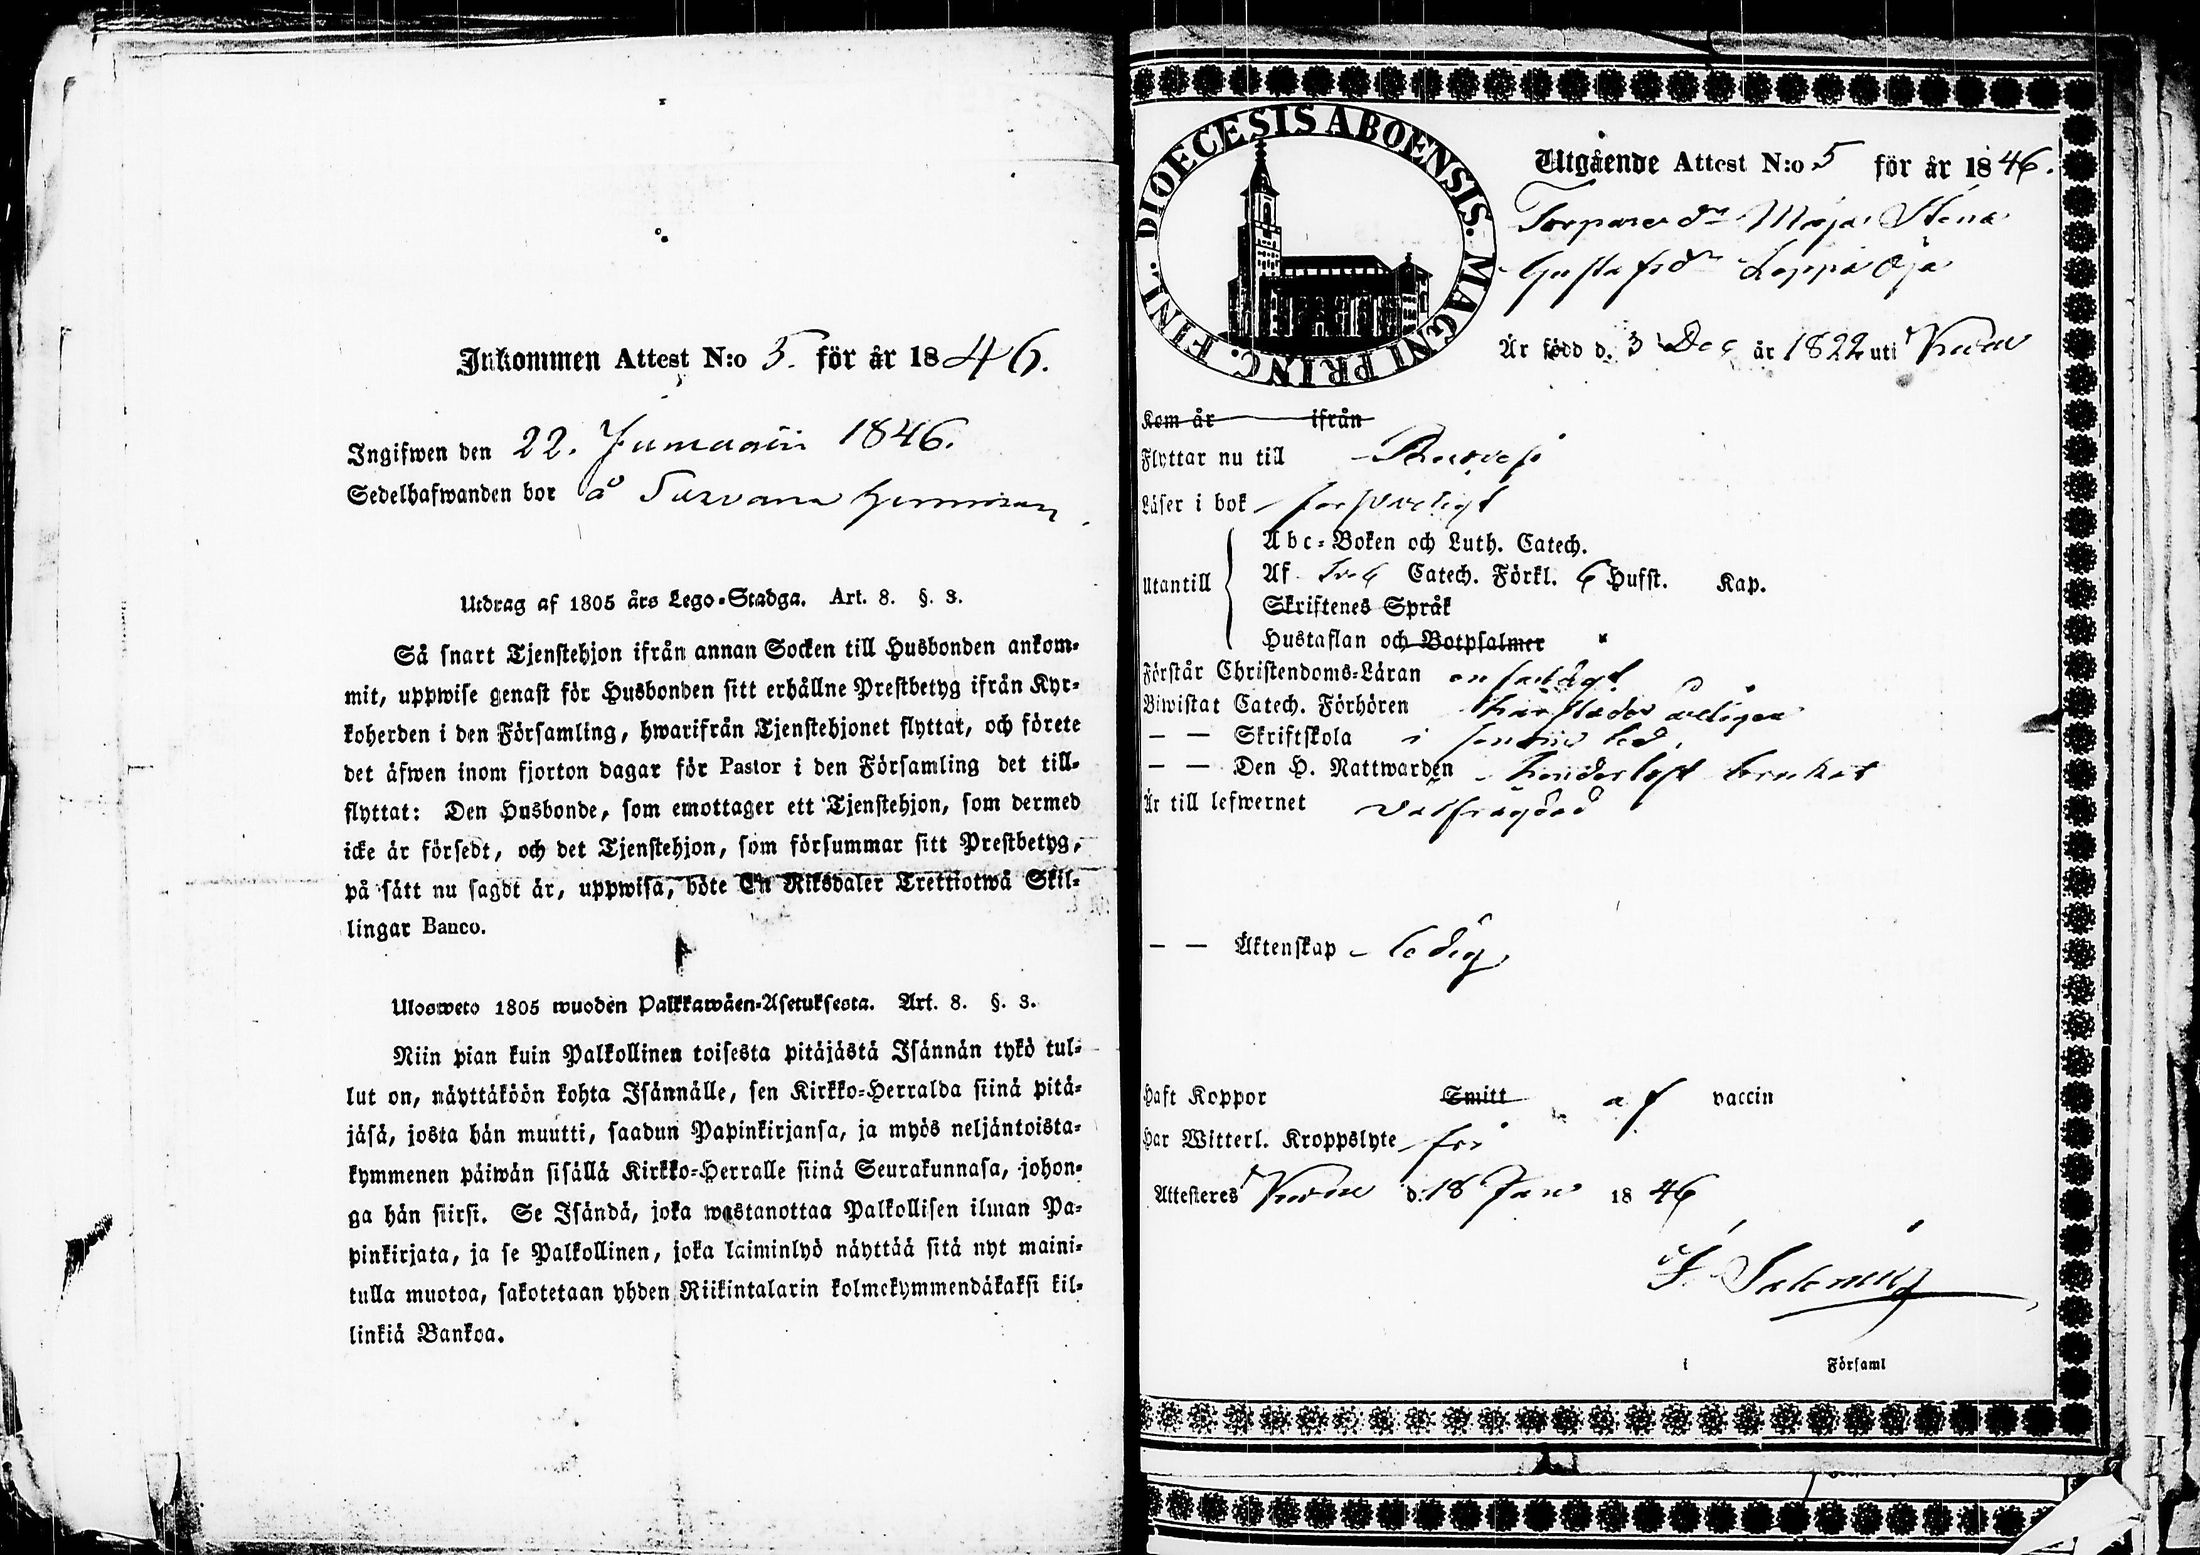 Inkommen Attest N:o 5. för år 1846.
Ingifwen den 22. Januarii 1846.
Sedelhafwanden bor å
Utdrag af 1805 års Lego-Stadga. Art. 8. §. 3.
Så snart Tjenstehjon ifrån annan Socken till Husbonden ankom-
mit, uppwise genast för Husbonden sitt erhållne Prestbetyg ifrån Kyr-
koherden i den Församling, hwarifrån Tjenstehjonet flyttat, och förete
det äfwen inom fjorton dagar för Pastor i den Församling det till-
flyttat: Den Husbonde, som emottager ett Tjenstehjon, som dermed
icke är försedt, och det Tjenstehjon, som försummar sitt Prestbetyg,
på sätt nu sagdt är, uppwisa, böte En Riksdaler Trettiotwå Skil-
lingar Banco.
Ulosweto 1805 wuoden Palkkawäen-Asetuksesta. Art. 8. §. 3.
Niin pian kuin Palkollinen toisesta pitäjästä Isännän tykö tul-
lut on, näyttäköön kohta Isännälle, sen Kirkko-Herralda siinä pitä-
jäsä, josta hän muutti, saadun Papinkirjansa, ja myös neljäntoista-
kymmenen päiwän sisällä Kirkko-Herralle siinä Seurakunnasa, johon-
ga hän siirsi. Se Isändä, joka wastanottaa Palkollisen ilman Pa-
pinkirjata, ja se Palkollinen, joka laiminlyö näyttää sitä nyt maini-
tulla muotoa, sakotetaan yhden Riikintalarin kolmekymmendäkaksi kil-
linkiä Bankoa.
DIOECESIS ABOENSIS. MAGNI PRINC. FINL.
Utgående Attest N:o 5 för år 1846.
Torpare dr Maja Stena
Gustafsdr Loppi Öja
Är född d. 3 Dec år 1822 uti
Kom år ifrån
Flyttar nu till Ruovesi
Läser i bok försvarligt
Utantill
Abc-Boken och Luth. Catech.
Af Catech. Förkl. 6 Hufst. Kap.
Skriftenes Språk
Hustaflan och Botpsalmer
Förstår Christendoms-Läran enfaldigt
Biwistat Catech. Förhören härstädes årligen
— — Skriftskola i
— — Den H. Nattwarden brukat
Är till lefwernet välfrägdad
— — Äktenskap ledig
Haft Koppor Smitt af vaccin
Har Witterl. Kroppslyte fri
Attesteres d. 18 Jan 1846
i Församl